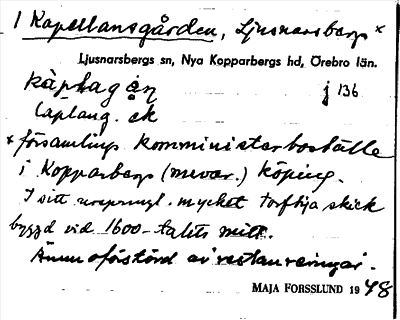 1 Kapellansgården, Ljusnarsbergs x
Ljusnarsbergs sn, Nya Kopparbergs hd, Örebro län.
j 136
x församlings komministerboställe
i Kopparbergs (nuvar.) köping.
I sitt urspungl. mycket skick
byggd vid 1600-talets mitt.
Ännu oförstörd av restaureringar.
MAJA FORSSLUND 1948